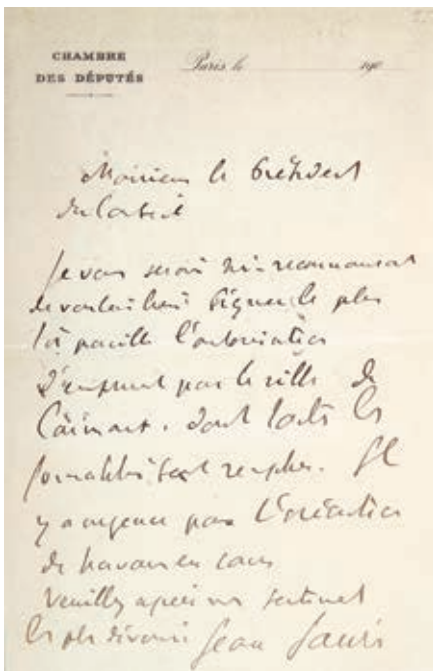 CHAMBRE
DES DÉPUTÉS
Paris, le 190
Monsieur le Président
du Conseil
Je vous serais très reconnaissant
de vouloir bien signer le plus
tôt possible l'autorisation
d'emprunt par la ville de
Carmaux, dont toutes les
formalités sont remplies. Il
y a urgence pour l'exécution
de travaux en cours
Veuillez agréer mes sentiments
les plus dévoués Jean Jaurès